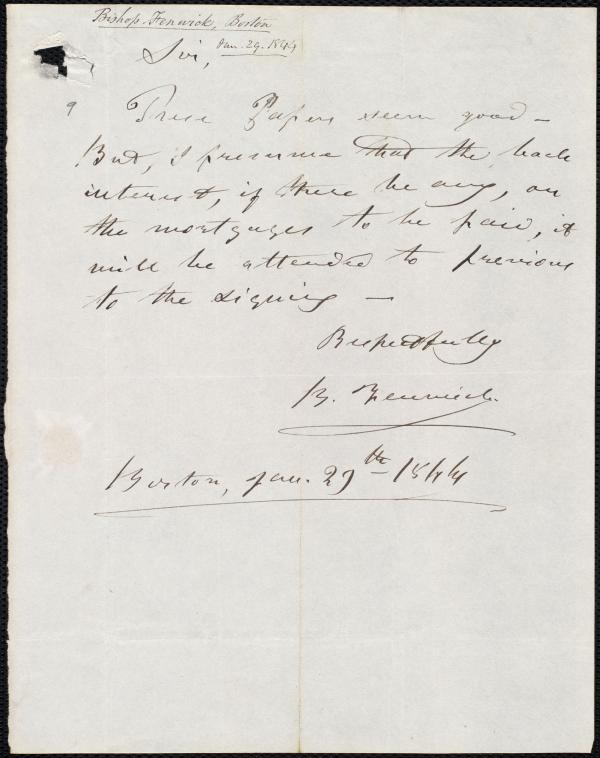 Bishop Fenwick, Boston
Jan. 29. 1844
Sir,
9
These Papers seem good –
But, I presume that the back
interest, if there be any, on
the mortgages to be paid, it
will be attended to previous
to the signing –
Respectfully
B. Fenwick
Boston, Jan. 29th 1844